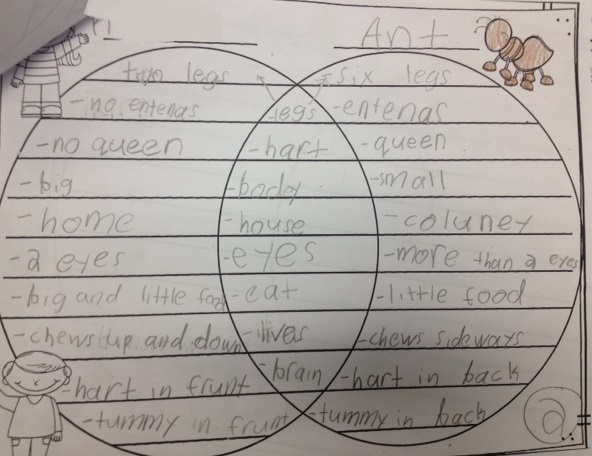 Ant
two legs legs six legs
-no entenas -entenas
-no queen -hart -queen
-big -body -small
-home -house -coluney
-2 eyes -eyes -more than 2 eyes
-big and little food -eat -little food
-chews up and down -lives -chews sideways
-hart in frunt -brain -hart in back
-tummy in frunt -tummy in back
2